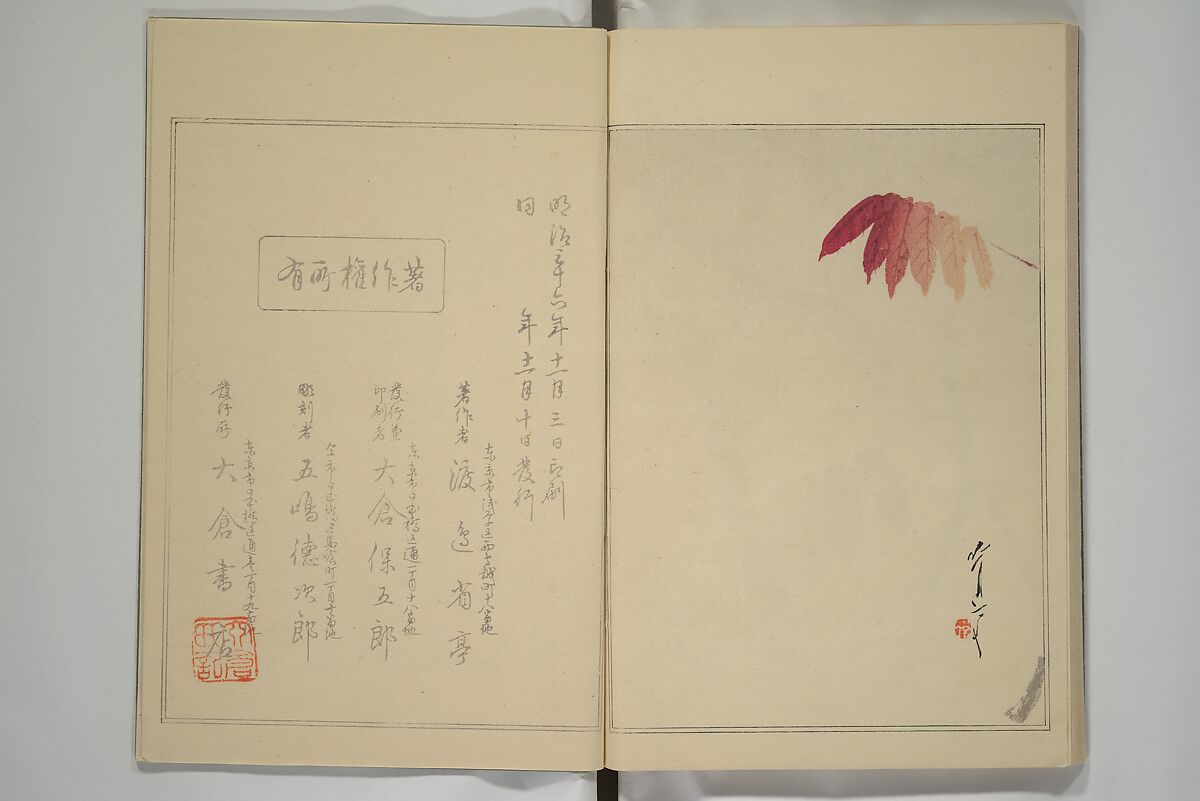 省亭
明治三十六年十一月三日印刷
同 年十一月十日發行
著作権所有
東京市浅草区西鳥越町十八番地
著作者 渡邉省亭
東京市日本橋区通一丁目十八番地
發行兼
印刷者 大倉保五郎
仝市日本橋区馬喰町 丁目 番地
彫刻者 五嶋德次郎
東京市日本橋区通壱丁目十九番地
發行所 大倉書店